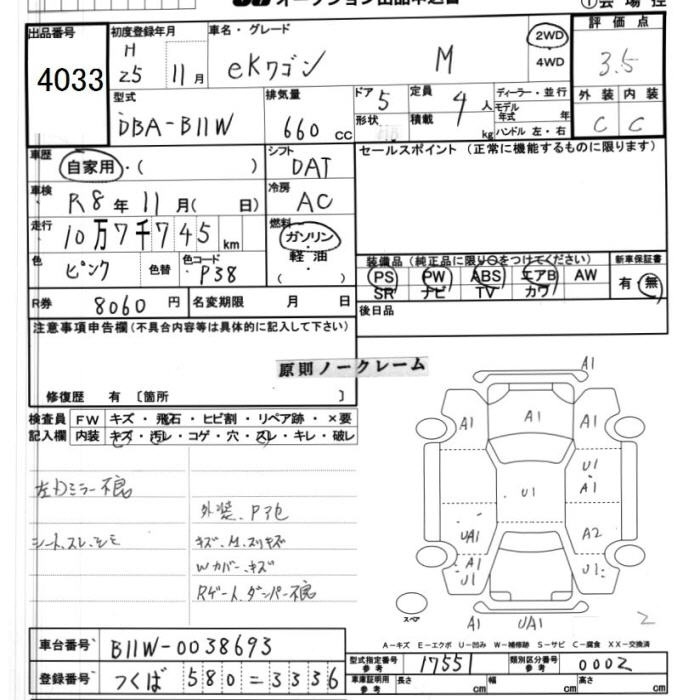 オークション出品申込書
出品番号
4033
初度登録年月
H 25 11月
車名・グレード
eKワゴン M
2WD
4WD
評価点
3.5
外装 内装
C C
型式
DBA-B11W
排気量
660 cc
ドア 5
形状
定員 4 人
積載 kg
ディーラー・並行
モデル年式 年
ハンドル 左・右
車歴
自家用・( )
シフト
DAT
セールスポイント (正常に機能するものに限ります)
車検
R8年11月( 日)
冷房
AC
走行
10万7千745km
燃料
ガソリン
軽油
( )
色
ピンク
色替
色コード
P38
装備品(純正品に限り○をつけてください)
PS PW ABS エアB AW
SR ナビ TV カワ
新車保証書
有・無
R券 8060円
名変期限 月 日
後日品
注意事項申告欄(不具合内容等は具体的に記入して下さい)
原則ノークレーム
修復歴 有 〔箇所 〕
検査員記入欄
FW キズ・飛石・ヒビ割・リペア跡・×要
内装 キズ・汚レ・コゲ・穴・スレ・キレ・破レ
左ドミラー不良
外装、Pアセ
シート、スレ、シミ
キズ、M、スリキズ
Wカバー、キズ
Rゲート、ダンパー不良
A1
A1 A1 A1
U1
A1
U1
UA1 A2
A1
U1 U1
スペア
A1 UA1
2
A-キズ E-エクボ U-凹み W-補修跡 S-サビ C-腐食 XX-交換済
車台番号 B11W-0038693
登録番号 つくば 580=3336
型式指定番号 参考 17551
類別区分番号 参考 0002
車庫証明用 参考 長さ cm 幅 cm 高さ cm